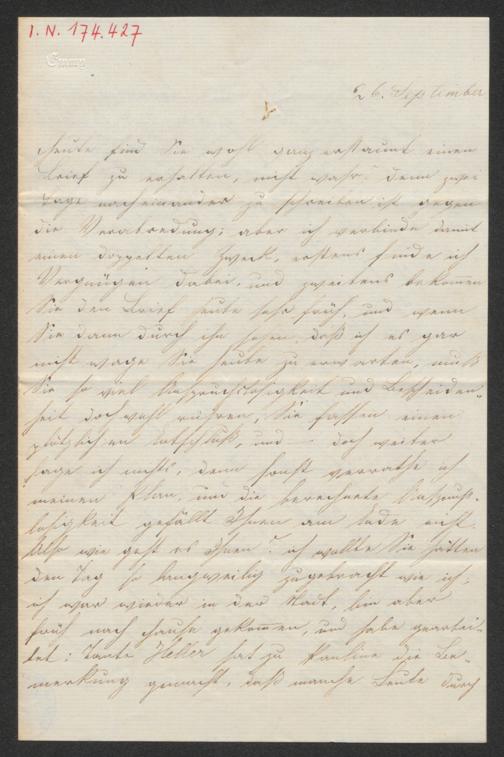 I. N. 174.427
Emmy
26. September
Heute sind Sie wohl ganz erstaunt einen
Brief zu erhalten, nicht wahr? denn zwei
Tage nacheinander zu schreiben ist gegen
die Verabredung; aber ich verbinde damit
einen doppelten Zweck, erstens finde ich
Vergnügen dabei, und zweitens bekommen
Sie den Brief heute sehr früh, und wenn
Sie dann durch ihn sehen, daß ich es gar
nicht wage Sie heute zu erwarten, muß
Sie so viel Anspruchslosigkeit und Bescheiden-
heit doch wohl rühren, Sie fassen einen
plötzlichen Entschluß, und – doch weiter
sage ich nichts, denn sonst verrathe ich
meinen Plan, und die berechnete Anspruchs-
losigkeit gefällt Ihnen am Ende nicht.
Also wie geht es Ihnen? ich wollte Sie hätten
den Tag so langweilig zugebracht wie ich,
ich war wieder in der Stadt, bin aber
früh nach Hause gekommen, und habe gearbei-
tet; Tante Heller hat zu Pauline die Be-
merkung gemacht, daß manche Leute durch